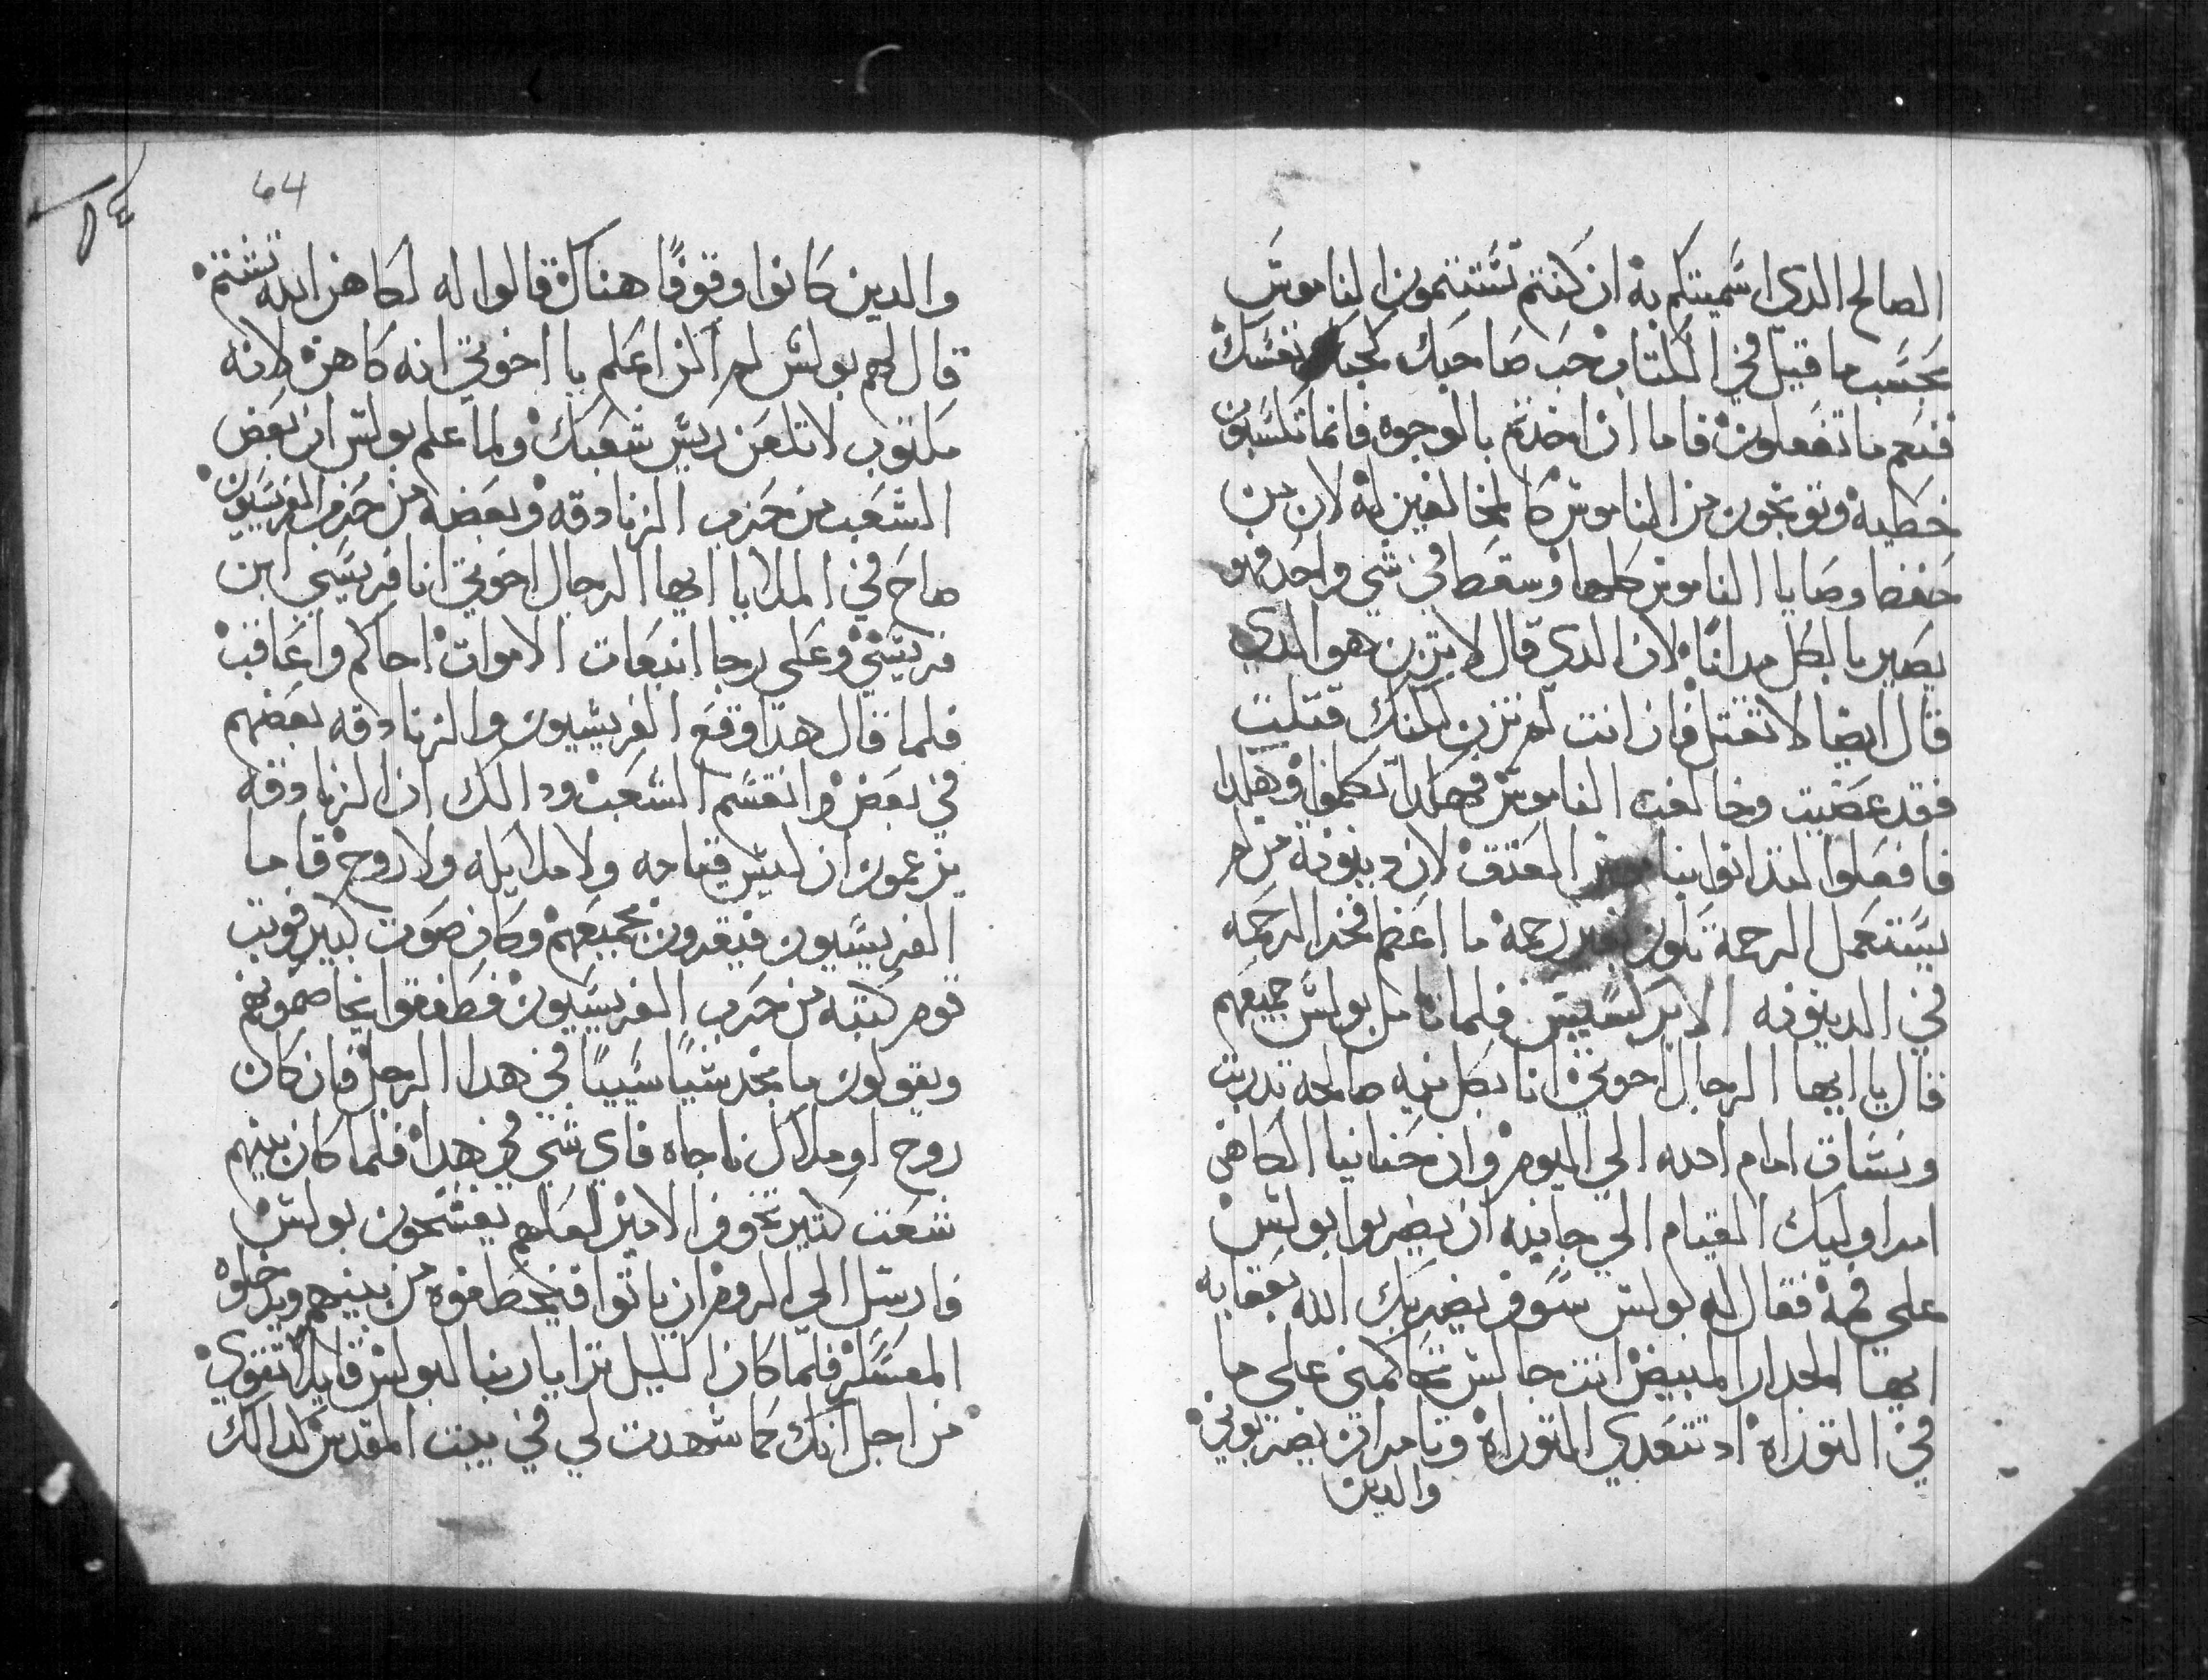 الصالح الدي اسميتكم به ان كنتم تستتمون الناموس
بحسب ما قيل في الكتاب حب صاحبك كحبك نفسك
فنعم ما تفعلون فاما ان اخدتم بالوجوه فانما تكسبون
خطيه وتوبخون من الناموس كالمخالفين له لان من
حفظ وصايا الناموس كلها وسقط في شي واحد فهو
يصير بالكل مدانًا لان الدي قال لا تزن هو الدي
قال ايضا لا تقتل فان انت لم تزن لكنك قتلت
فقد عصيت وخالفت الناموس فهكدا تكلموا وهكدا
فافعلوا لتدانوا بناموس العتق لان دينونة من لم
يستعمل الرحمة تكون بغير رحمة ما اعظم فخر الرحمه
في الدينونه الابركسيس فلما تامل بولس جميعهم
قال يا ايها الرجال اخوتي انا بكل نيه صالحه تدربت
ونشات امام الله الي اليوم وان حنانيا الكاهن
امر اوليك القيام الي جانبه ان يضربوا بولس
علي فمة فقال له بولس سوف يضربك الله بعقابه
ايها الجدار المبيض انت جالس تحاكمني علي ما
في التوراه اد تتعدي التوراه وتامر ان يضربوني
والدين
64
٦٤
والدين كانوا وقوفًا هناك قالوا له لكاهن الله تشتم
قال لهم بولس لم اكن اعلم يا اخوتي انه كاهن لانه
مكتوب لا تلعن ريس شعبك ولما علم بولس ان بعض
الشعب من حزب الزنادقه وبعضه من حزب الفريسيون
صاح في الملا يا ايها الرجال اخوتي انا فريسي ابن
فريسي وعلي رجا انبعات الاموات احاكم واعاقب
فلما قال هدا وقع الفريسيون والزنادقه بعضهم
في بعض وانقسم الشعب ودالك ان الزنادقه
يزعمون ان ليس قيامه ولا ملايكه ولا روح فاما
الفريسيون فيقرون بجميعهم وكان صوت كبير فوتب
قوم كتبه من حزب الفريسيون فطفقوا يخاصمونهم
ويقولون ما نجد شيًا سييًا في هدا الرجل فان كان
روح او ملاك ناجاه فاي شي في هدا فلما كان بينهم
شعب كتير تخوف الامير لعلهم يفسخون بولس
فارسل الي الروم ان ياتوا فيخطفوه من بينهم ويدخلوه
المعسكر فلما كان الليل ترايا ربنا لبولس قايلا تقوي
من اجل انك كما شهدت لي في بيت المقدس كدالك